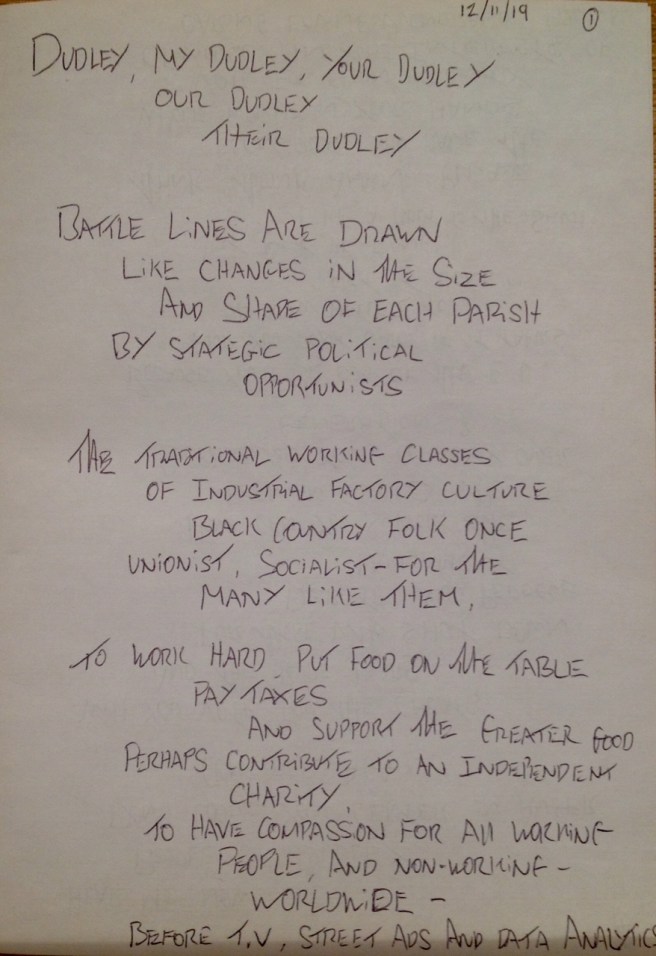 12/11/19 ①
DUDLEY, MY DUDLEY, YOUR DUDLEY
OUR DUDLEY
THEIR DUDLEY
BATTLE LINES ARE DRAWN
LIKE CHANGES IN THE SIZE
AND SHAPE OF EACH PARISH
BY STATEGIC POLITICAL
OPPORTUNISTS
THE TRADITIONAL WORKING CLASSES
OF INDUSTRIAL FACTORY CULTURE
BLACK COUNTRY FOLK ONCE
UNIONIST, SOCIALIST - FOR THE
MANY LIKE THEM,
TO WORK HARD, PUT FOOD ON THE TABLE
PAY TAXES
AND SUPPORT THE GREATER GOOD
PERHAPS CONTRIBUTE TO AN INDEPENDENT
CHARITY,
TO HAVE COMPASSION FOR ALL WORKING
PEOPLE, AND NON-WORKING -
WORLDWIDE -
BEFORE T.V, STREET ADS AND DATA ANALYTICS